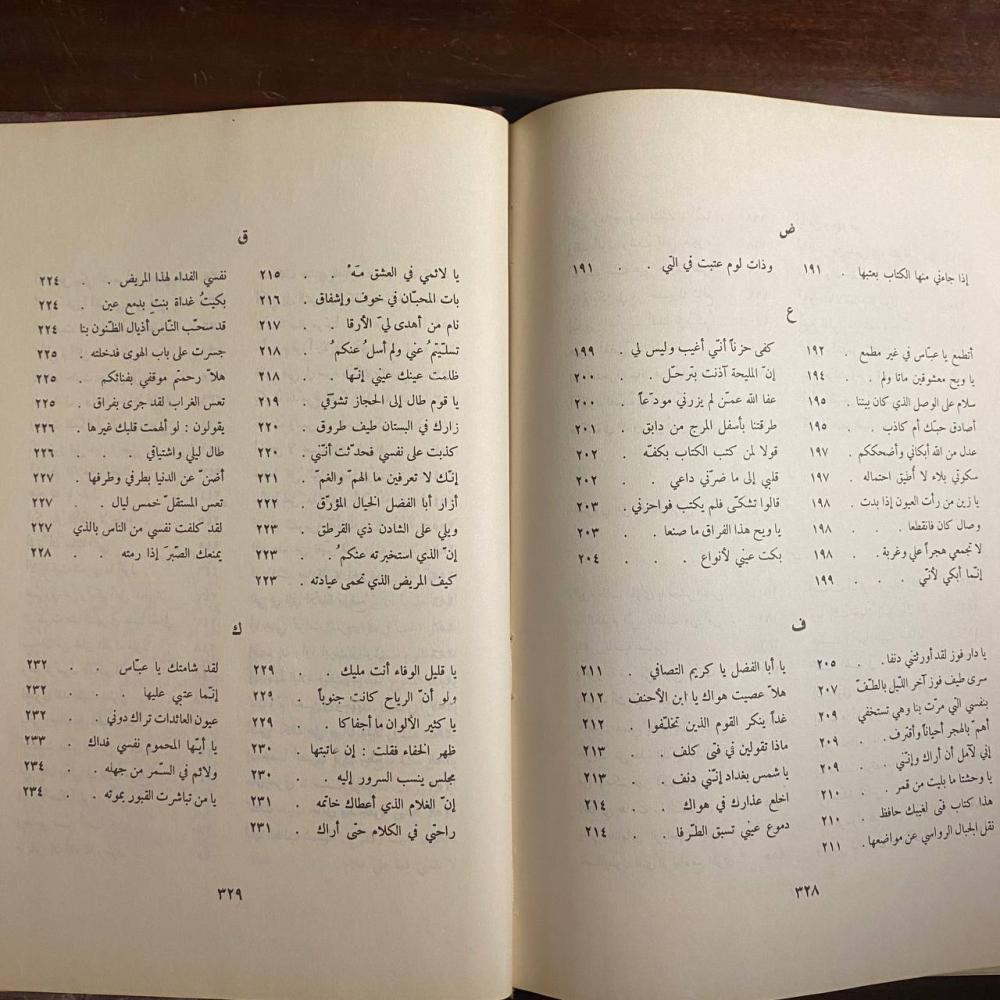 ض
إذا جاءني منها الكتاب بعتبها . ١٩١
وذات لوم عتبت في التي . . ١٩١
ع
أتطمع يا عبّاس في غير مطمع . ١٩٢
يا ويح معشوقين ماتا ولم . . ١٩٤
سلام على الوصل الذي كان بيننا . ١٩٥
أصادق حبّك أم كاذب . . ١٩٥
عدل من الله أبكاني وأضحككم . ١٩٧
سكوتي بلاء لا أُطيق احتماله . ١٩٧
يا زين من رأت العيون إذا بدت . ١٩٨
وصال كان فانقطعا . . ١٩٨
لا تجمعي هجراً علي وغربة . . ١٩٨
إنّما أبكي لأنّي . . . ١٩٩
كفى حزناً أنّي أغيب وليس لي . ١٩٩
إنّ المليحة آذنت بترحّل . . ٢٠٠
عفا الله عمّن لم يزرني مودّعاً . ٢٠٠
طرقتنا بأسفل المرج من دابق . ٢٠١
قولا لمن كتب الكتاب بكفّه . ٢٠٢
قلبي إلى ما ضرّني داعي . . ٢٠٢
قالوا تشكّى فلم يكتب فواحزني . ٢٠٣
يا ويح هذا الفراق ما صنعا . ٢٠٣
بكت عيني لأنواع . . . ٢٠٤
ف
يا دار فوز لقد أورثتني دنفا . ٢٠٥
سرى طيف فوز آخر الليل بالطفّ ٢٠٧
بنفسي التي مرّت بنا وهي تستخفي ٢٠٩
أهمّ بالهجر أحياناً وأقترف . . ٢٠٩
إني لآمل أن أراك وإنّني . . ٢٠٩
يا وحشتا ما بليت من قمر . . ٢١٠
هذا كتاب فتى لغيبك حافظ . ٢١٠
نقل الجبال الرواسي عن مواضعها . ٢١١
يا أبا الفضل يا كريم التصافي . ٢١١
هلاّ عصيت هواك يا ابن الأحنف ٢١٢
غداً ينكر القوم الذين تخلّفوا . ٢١٢
ماذا تقولين في فتى كلف . ٢١٣
يا شمس بغداد إنّني دنف . ٢١٣
اخلع عذارك في هواك . . ٢١٤
دموع عيني تسبق الطّرفا . . ٢١٤
٣٢٨
ق
يا لائمي في العشق مَهْ . . ٢١٥
بات المحبّان في خوف وإشفاق . ٢١٦
نام من أهدى ليَ الأرقا . . ٢١٧
تسلّيتمُ عني ولم أسلُ عنكمُ . ٢١٨
ظلمت عينك عيني إنّها . . ٢١٨
يا قوم طال إلى الحجاز تشوّقي . ٢١٩
زارك في البستان طيف طروق . ٢٢٠
كذبت على نفسي فحدّثت أنّني . ٢٢٠
إنّك لا تعرفين ما الهمّ والغمّ . ٢٢١
أزار أبا الفضل الخيال المؤرّق . ٢٢٢
ويلي على الشادن ذي القرطق . ٢٢٣
إنّ الذي استخبرته عنكمُ . . ٢٢٣
كيف المريض الذي تحمى عيادته . ٢٢٣
نفسي الفداء لهذا المريض . . ٢٢٤
بكيتُ غداة بنتِ بدمع عين . ٢٢٤
قد سحّب النّاس أذيال الظّنون بنا ٢٢٤
جسرت على باب الهوى فدخلته . ٢٢٥
هلاّ رحمتم موقفي بفنائكم . ٢٢٥
تعس الغراب لقد جرى بفراق . ٢٢٥
يقولون : لو ألهمت قلبك غيرها . ٢٢٦
طال ليلي واشتياقي . . . . ٢٢٦
أضنّ عن الدنيا بطرفي وطرفها . ٢٢٧
تعس المستقلّ خمس ليال . . ٢٢٧
لقد كلفت نفسي من الناس بالذي ٢٢٧
يمنعك الصّبرَ إذا رمته . . . ٢٢٨
ك
يا قليل الوفاء أنت مليك . . ٢٢٩
ولو أنّ الرياح كانت جنوباً . . ٢٢٩
يا كثير الألوان ما أجفاكا . . ٢٢٩
ظهر الجفاء فقلت : إن عاتبتها . ٢٣٠
مجلس ينسب السرور إليه . . ٢٣٠
إنّ الغلام الذي أعطاك خاتمه . ٢٣١
راحتي في الكلام حتى أراك . ٢٣١
لقد شامتك يا عبّاس . . ٢٣٢
إنّما عتبي عليها . . . ٢٣٢
عيون العائدات تراك دوني . . ٢٣٢
يا أيّها المحموم نفسي فداك . . ٢٣٣
ولائم في السّمر من جهله . . ٢٣٤
يا من تباشرت القبور بموته . . ٢٣٤
٣٢٩